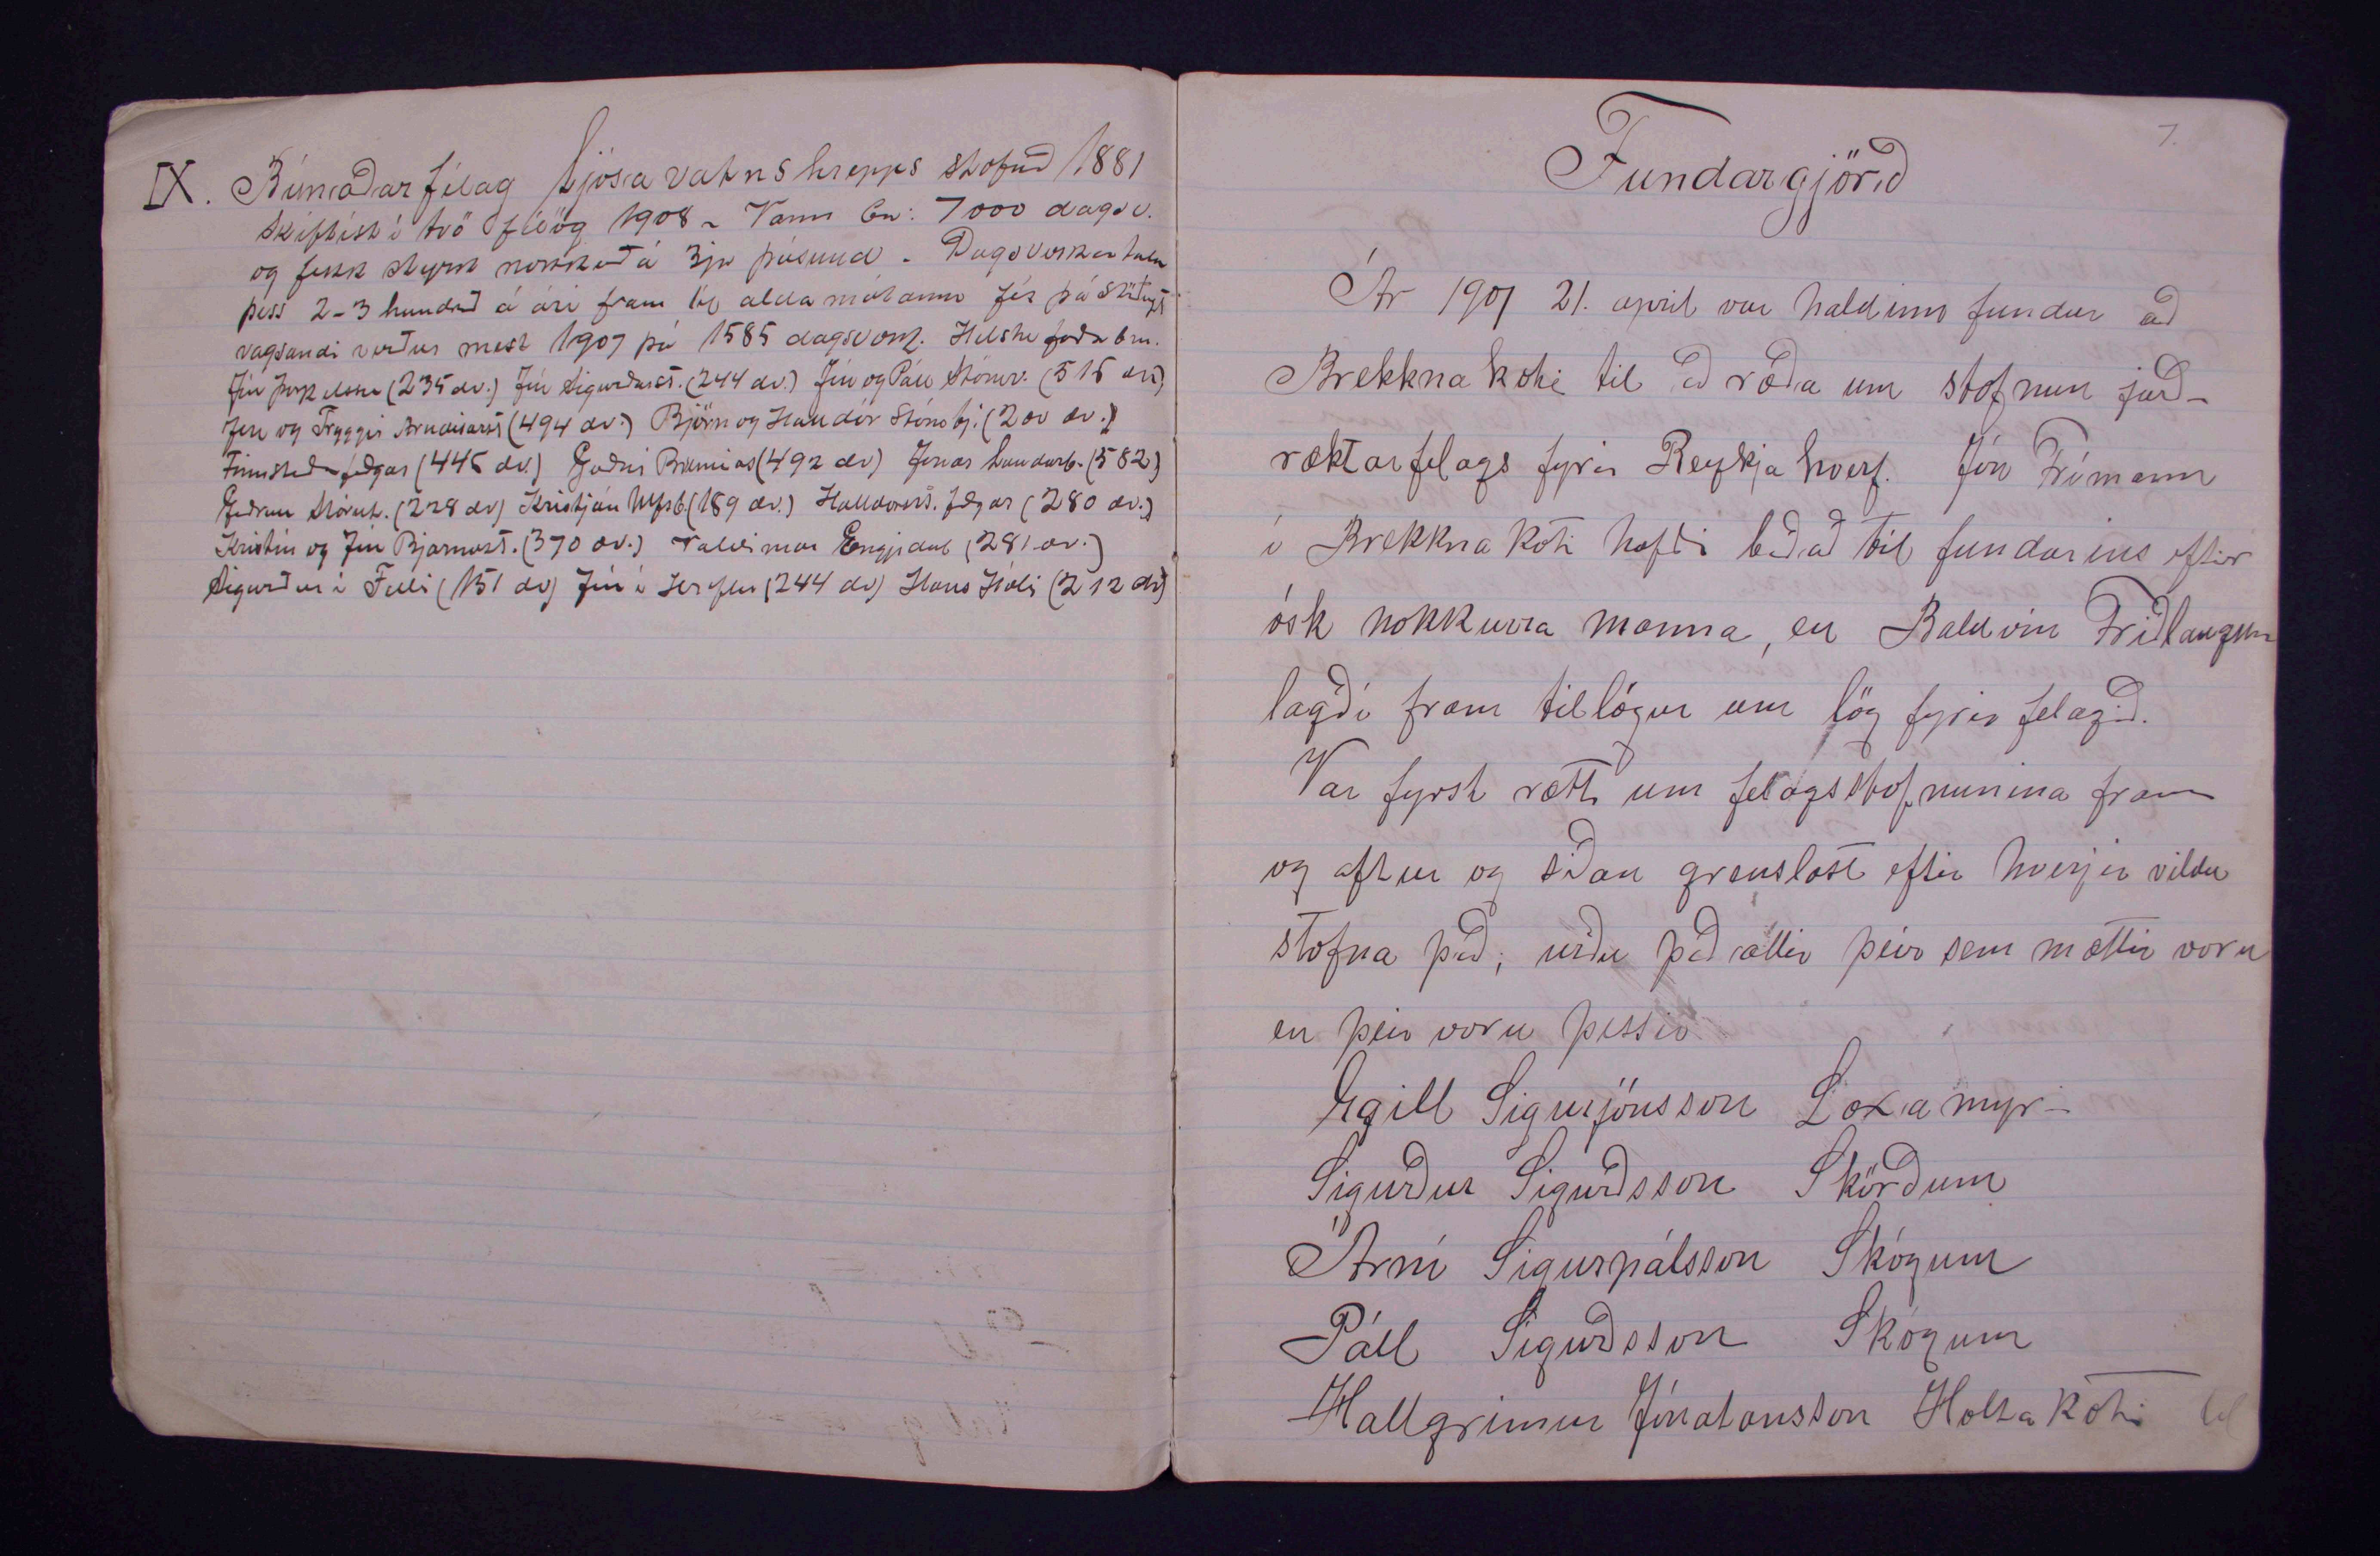 IX. Búnaðarfélag Ljósavatnshrepps stofnað 1881
skiftist í tvö félög 1908 - Vann 7000 dagsv.
og fekk styrk nokkuð á 3ju þúsund. Dagsverkatala
þess 2-3 hundruð á ári fram til aldamótanna fer þá
vaxandi verður mest 1907 þá 1585 dagsverk. Helstu
Jón Þorkelsson (235 dv.) Jón Sigurðarst. (244 dv.) Jón og Páll Stóruv. (515 dv.)
Jón og Tryggvi Arndísarst. (494 dv.) Björn og Halldór (200 dv.)
feðgar (445 dv.) Guðni (492 dv) Jónas Landamb. (582)
(228 dv) Kristján (189 dv.) Halldórsst. feðgar (280 dv.)
Kristín og Jón Bjarnast. (370 dv.) Valdimar Engidal (281 dv.)
Sigurður í Felli (151 dv) Jón í (244 dv) Hans Hóli (212 dv)
7.
Fundargjörð
Ár 1907 21. apríl var haldinn fundur að
Brekknakoti til að ræða um stofnun jarð-
ræktarfelags fyrir Reykjahverf. Jón Frímann
í Brekknakoti hafði boðað til fundarins eftir
ósk nokkurra manna, en Baldvin Friðlaugsson
lagði fram tillögur um lög fyrir felagið.
Var fyrst rætt um felagsstofnunina fram
og aftur og síðan grenslast eftir hverjir vildu
stofna það; urðu það allir þeir sem mættir voru
en þeir voru þessir
Egill Sigurjónsson Laxamyri
Sigurður Sigurðsson Skörðum
Árni Sigurpálsson Skógum
Páll Sigurðsson Skógum
Hallgrimur Jónatansson Holtakoti